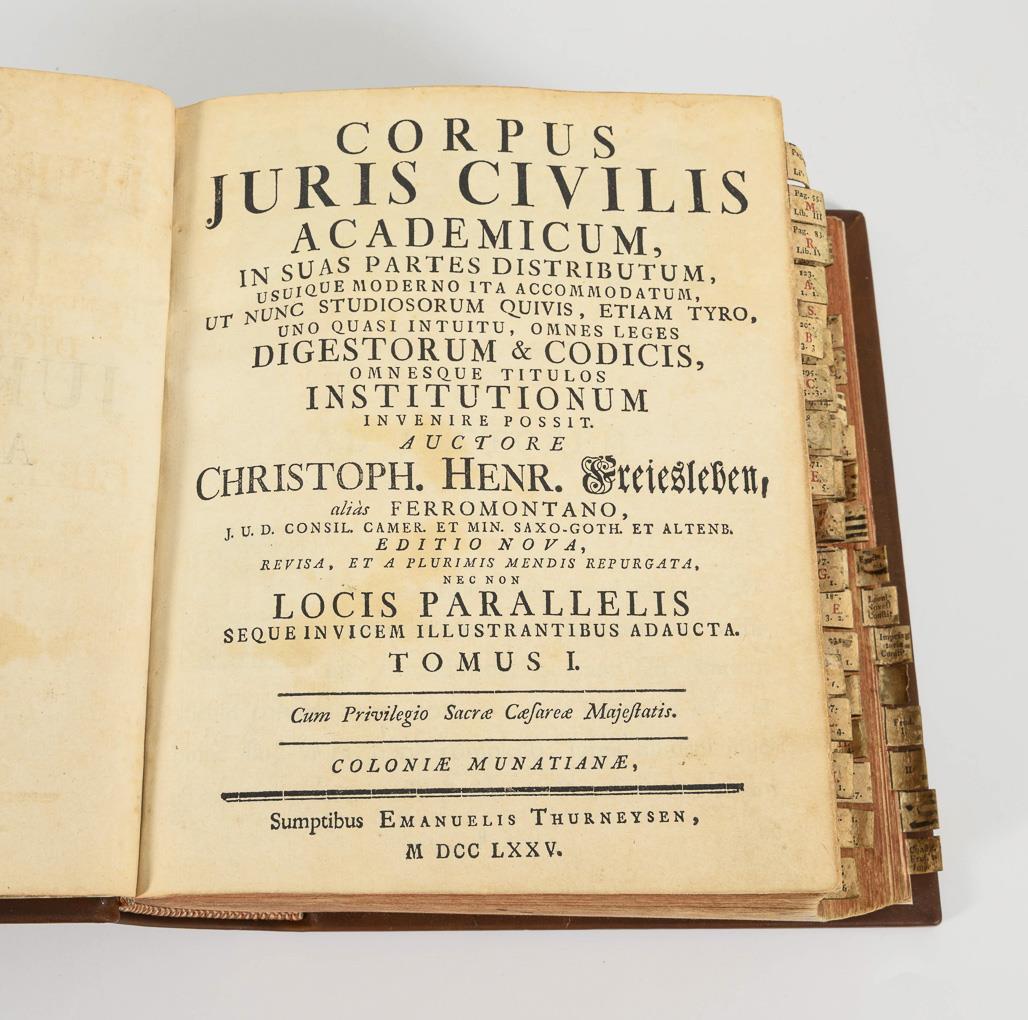 CORPUS
JURIS CIVILIS
ACADEMICUM,
IN SUAS PARTES DISTRIBUTUM,
USUIQUE MODERNO ITA ACCOMMODATUM,
UT NUNC STUDIOSORUM QUIVIS, ETIAM TYRO,
UNO QUASI INTUITU, OMNES LEGES
DIGESTORUM & CODICIS,
OMNESQUE TITULOS
INSTITUTIONUM
INVENIRE POSSIT.
AUCTORE
CHRISTOPH. HENR. Freiesleben,
aliàs FERROMONTANO,
J. U. D. CONSIL. CAMER. ET MIN. SAXO-GOTH. ET ALTENB.
EDITIO NOVA,
REVISA, ET A PLURIMIS MENDIS REPURGATA,
NEC NON
LOCIS PARALLELIS
SEQUE INVICEM ILLUSTRANTIBUS ADAUCTA.
TOMUS I.
Cum Privilegio Sacræ Cæſareæ Majeſtatis.
COLONIÆ MUNATIANÆ,
Sumptibus EMANUELIS THURNEYSEN,
M DCC LXXV.
Pag. 55.
M.
Lib. III
Pag. 83.
R.
Lib. IV
123.
Æ.
1. 1.
S.
B.
3. 3
C.
E.
G.
F.
3. 2.